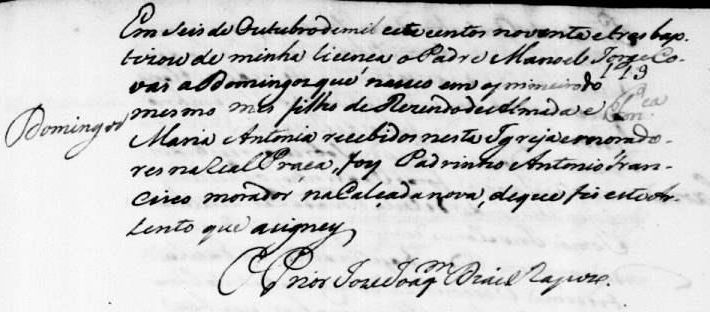 Em seis de Outubro de mil sete centos noventa e tres bap-
tizou de minha licença o Padre Manoel Jose Co-
vas a Domingos que nasceo em o primeiro do
mesmo mes filho de Rozendo de Almada e
Domingos
Maria Antonia recebidos nesta Igreja e morado-
res na Real Praça, foy Padrinho Antonio Fran-
cisco morador na Calçada nova, de que fis este As-
sento que asigney
O Prior Joze Joaq.m